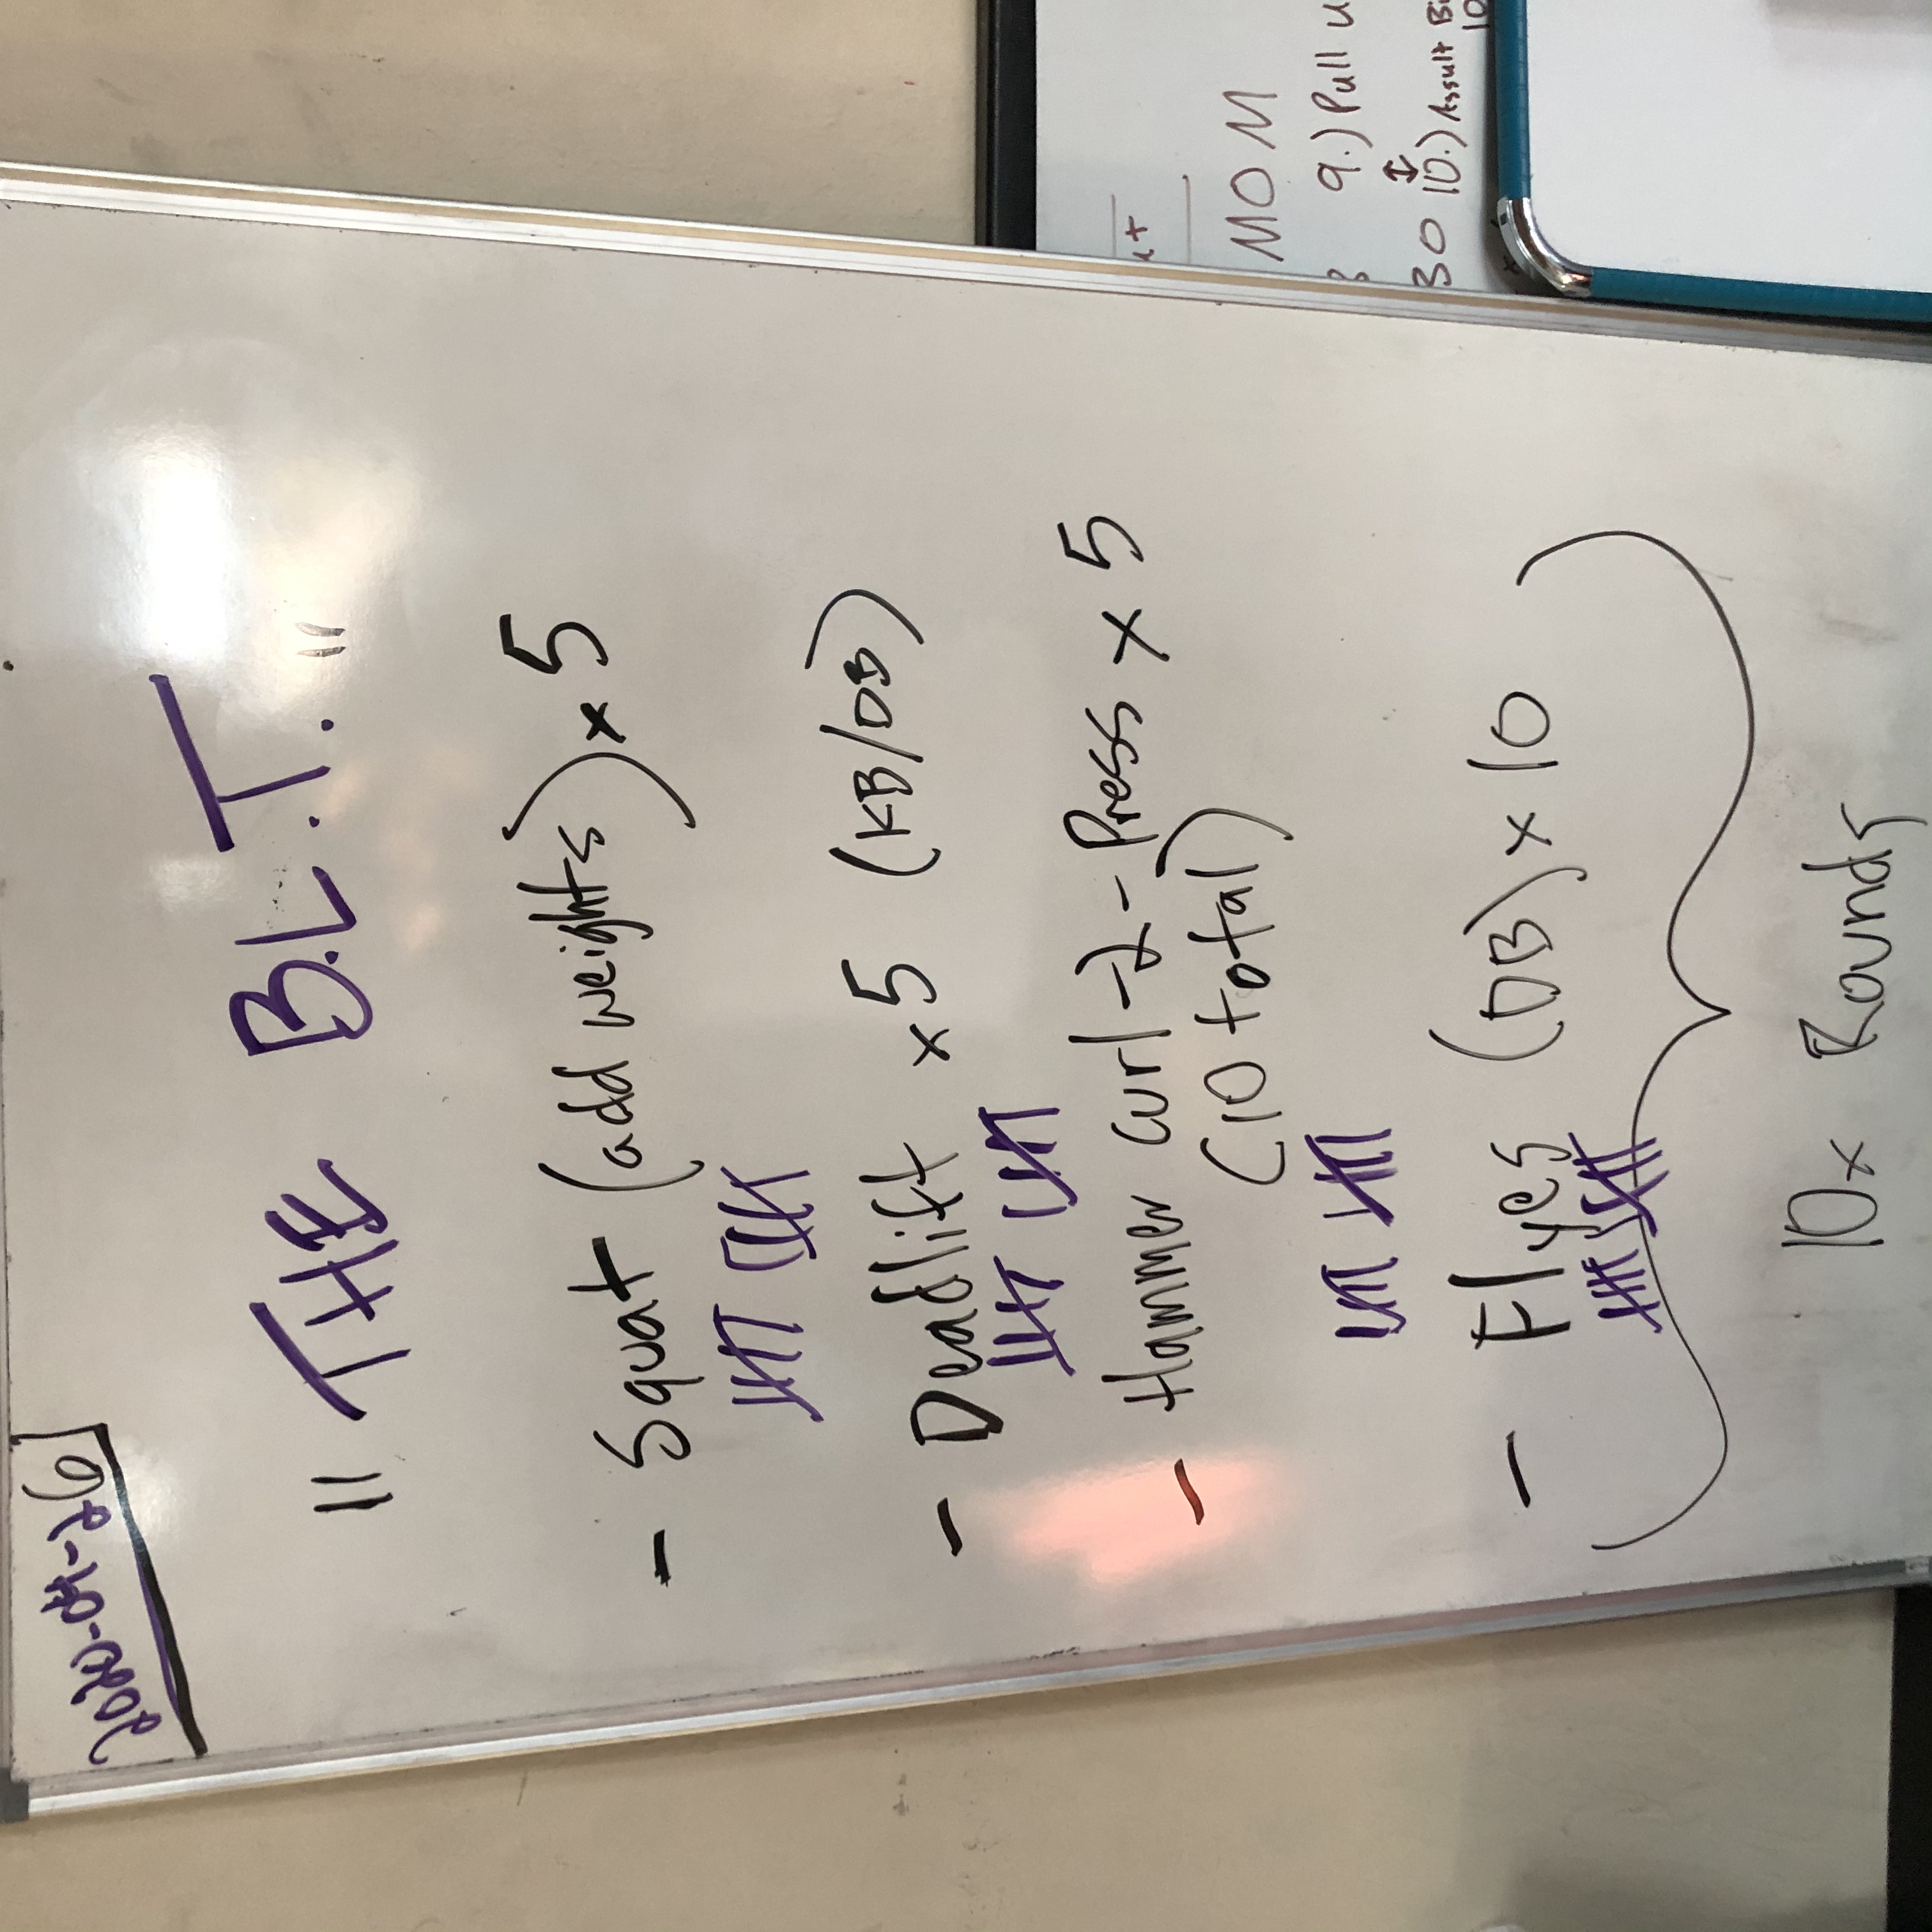 2020-04-26
"THE B.L.T."
- Squat (add weights) x 5
- Deadlift x5 (KB/DB)
- Hammer curl-2-Press x 5
(10 total)
- Flyes (DB) x 10
10x Rounds
MOM
9.) Pull
30 10.) Assult
10